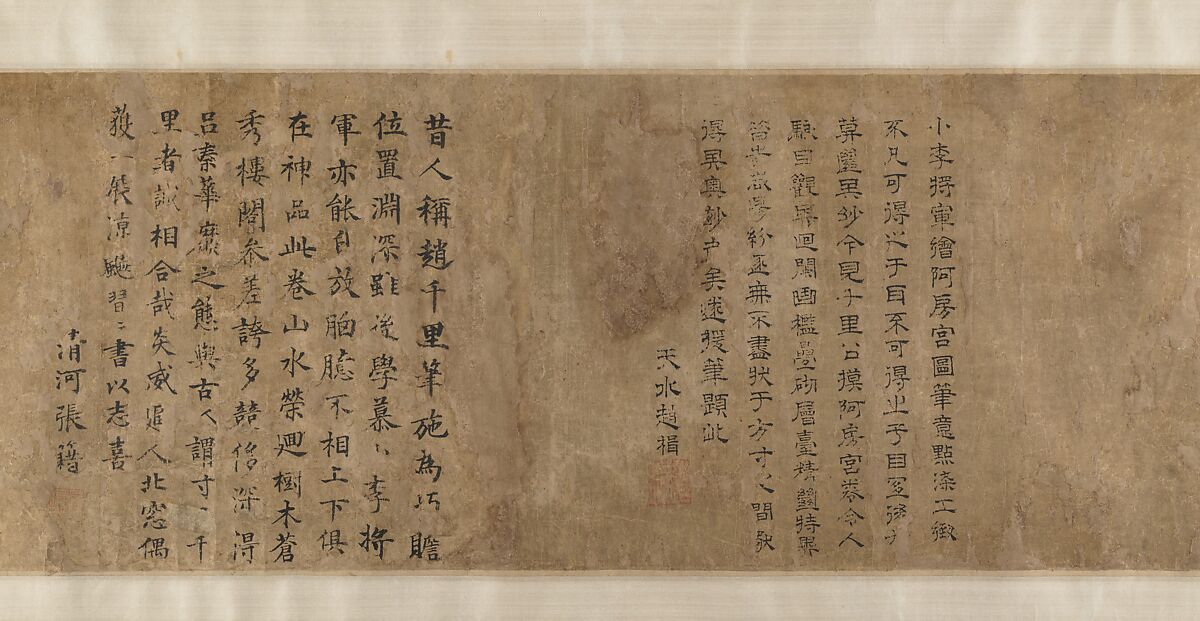 小李將軍繪阿房宮圖筆意點染工緻
不凡可得之于目不可得之乎
其妙今見千里公摸阿房宮卷令人
駭目觀其迴闌畫檻疊砌層臺精麗特異
紛丕無不盡狀于方寸之間
得其奧妙者矣遂援筆題此
天水趙
昔人稱趙千里筆施為巧贍
位置淵深雖後學慕小李將
軍亦能自放胸臆不相上下俱
在神品此卷山水縈迴樹木蒼
秀樓閣參差誇多競侈深得
呂秦華靡之態與古人謂寸寸千
里者誠相合哉炎威逼人北窓偶
獲一展涼颸習習書以志喜
清河張籍